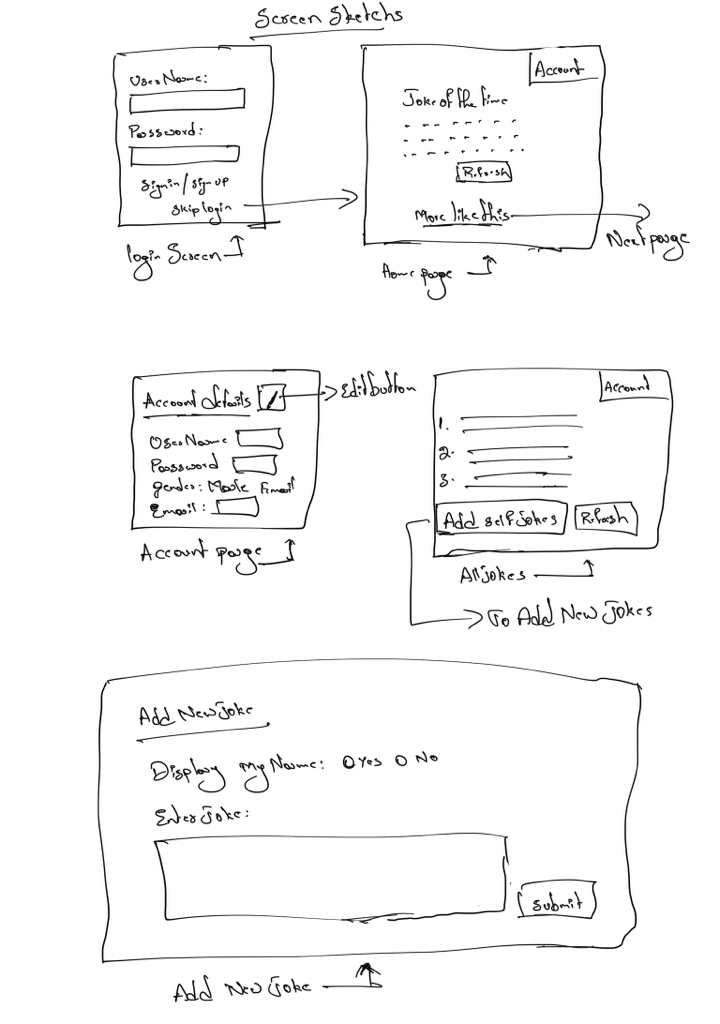 Screen Sketchs
UserName:
Password:
Signin/signup
skiplogin
login Screen
Account
Joke of the time
Refresh
More like this
Next page
Home page
Account details
Edit button
UserName
Password
gender: Male Email
Email:
Account page
Account
1.
2.
3.
Add self jokes
Refresh
All jokes
To Add New Jokes
Add New Joke
Display my Name: O Yes O No
Enter Joke:
Submit
Add New Joke